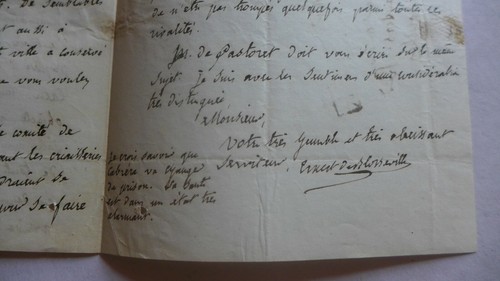 de Septembre
t aussi à
ville a conservé
vous voulez
le comité de
aut les
Druient de
de faire
de n'être pas trompés quelquefois parmi toutes ces
rivalités.
Mr. de Pastoret doit vous écrire sur le même
sujet. Je suis avec les Sentimens d'une considération
très distinguée,
Monsieur,
Votre très humble et très obéissant
Serviteur, Ernest de Blosseville
je crois savoir que
Cabrera va changer
de prison. Sa Santé
est dans un état très
alarmant.